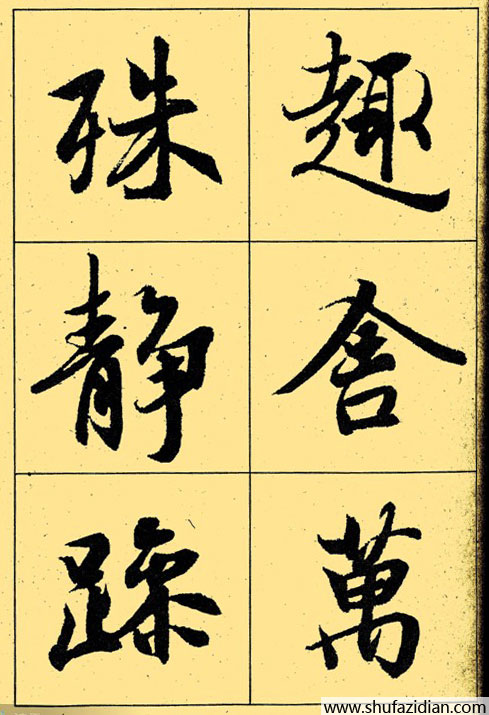 趣舍萬
殊静躁
www.shufazidian.com